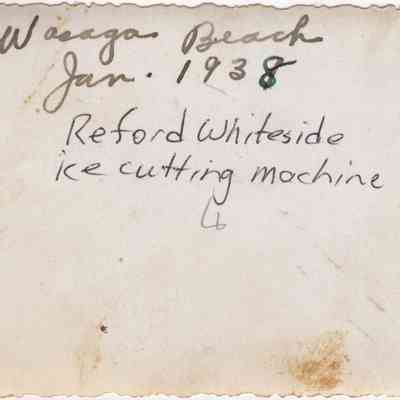 Wasaga Beach
Jan. 1938
Reford Whiteside
ice cutting machine